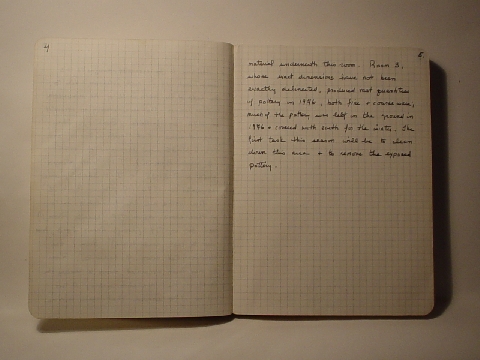 4
5
material underneath this room. Room 3,
whose exact dimensions have not been
exactly delineated, produced vast quantities
of pottery in 1996, both fine + coarse ware,
much of the pottery was left in the ground in
1996 + covered with earth for the winter. The
first task this season will be to clean
down this area + to remove the exposed
pottery.